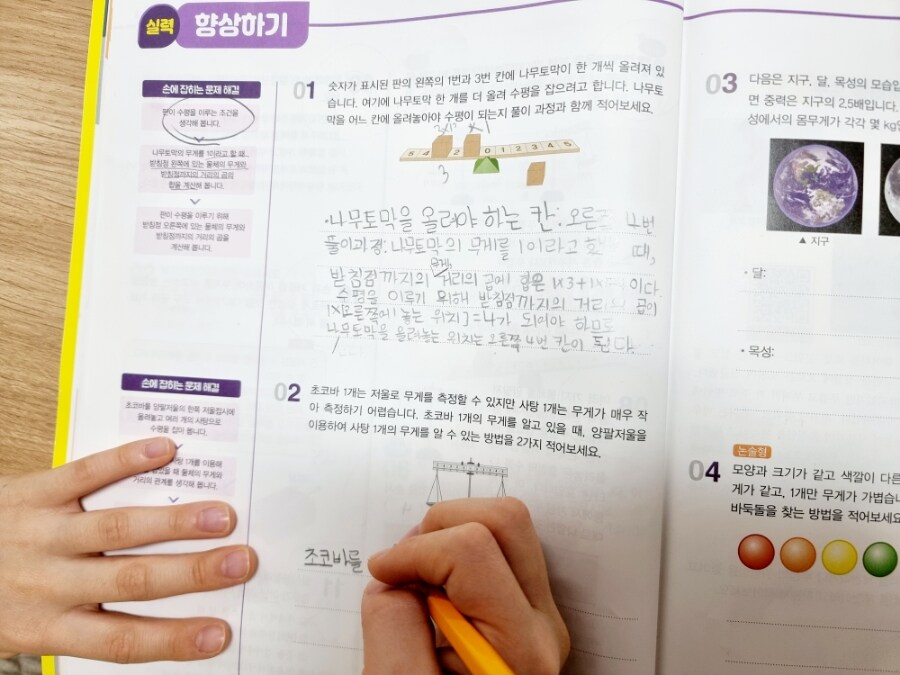 실력 향상하기
손에 잡히는 문제 해결
판이 수평을 이루는 조건을
생각해 봅니다.
나무토막의 무게를 1이라고 할 때,
받침점 왼쪽에 있는 물체의 무게와
받침점까지의 거리의 곱의
합을 계산해 봅니다.
판이 수평을 이루기 위해
받침점 오른쪽에 있는 물체의 무게와
받침점까지의 거리의 곱을
계산해 봅니다.
01
숫자가 표시된 판의 왼쪽의 1번과 3번 칸에 나무토막이 한 개씩 올려져 있
습니다. 여기에 나무토막 한 개를 더 올려 수평을 잡으려고 합니다. 나무토
막을 어느 칸에 올려놓아야 수평이 되는지 풀이 과정과 함께 적어보세요.
5 4 2 0 1 2 3 4 5
3
·나무토막을 올려야 하는 칸: 오른쪽 4번
풀이과정: 나무토막의 무게를 1이라고 할 때,
받침점까지의 거리의 곱에 합은 1×3+1× 이다.
수평을 이루기 위해 받침점까지의 거리의 곱이
1×[오른쪽에 놓는 위치]=4가 되어야 하므로
나무토막을 올려놓는 위치는 오른쪽 4번 칸이 된다.
손에 잡히는 문제 해결
초코바를 양팔저울의 한쪽 저울접시에
올려놓고 여러 개의 사탕으로
수평을 잡아 봅니다.
사탕 1개를 이용해
때 물체의 무게와
거리의 관계를 생각해 봅니다.
02
초코바 1개는 저울로 무게를 측정할 수 있지만 사탕 1개는 무게가 매우 작
아 측정하기 어렵습니다. 초코바 1개의 무게를 알고 있을 때, 양팔저울을
이용하여 사탕 1개의 무게를 알 수 있는 방법을 2가지 적어보세요.
초코바를
03
다음은 지구, 달, 목성의 모습입
면 중력은 지구의 2.5배입니다.
성에서의 몸무게가 각각 몇 kg
▲ 지구
• 달:
• 목성:
논술형
04
모양과 크기가 같고 색깔이 다른
게가 같고, 1개만 무게가 가볍습니
바둑돌을 찾는 방법을 적어보세요